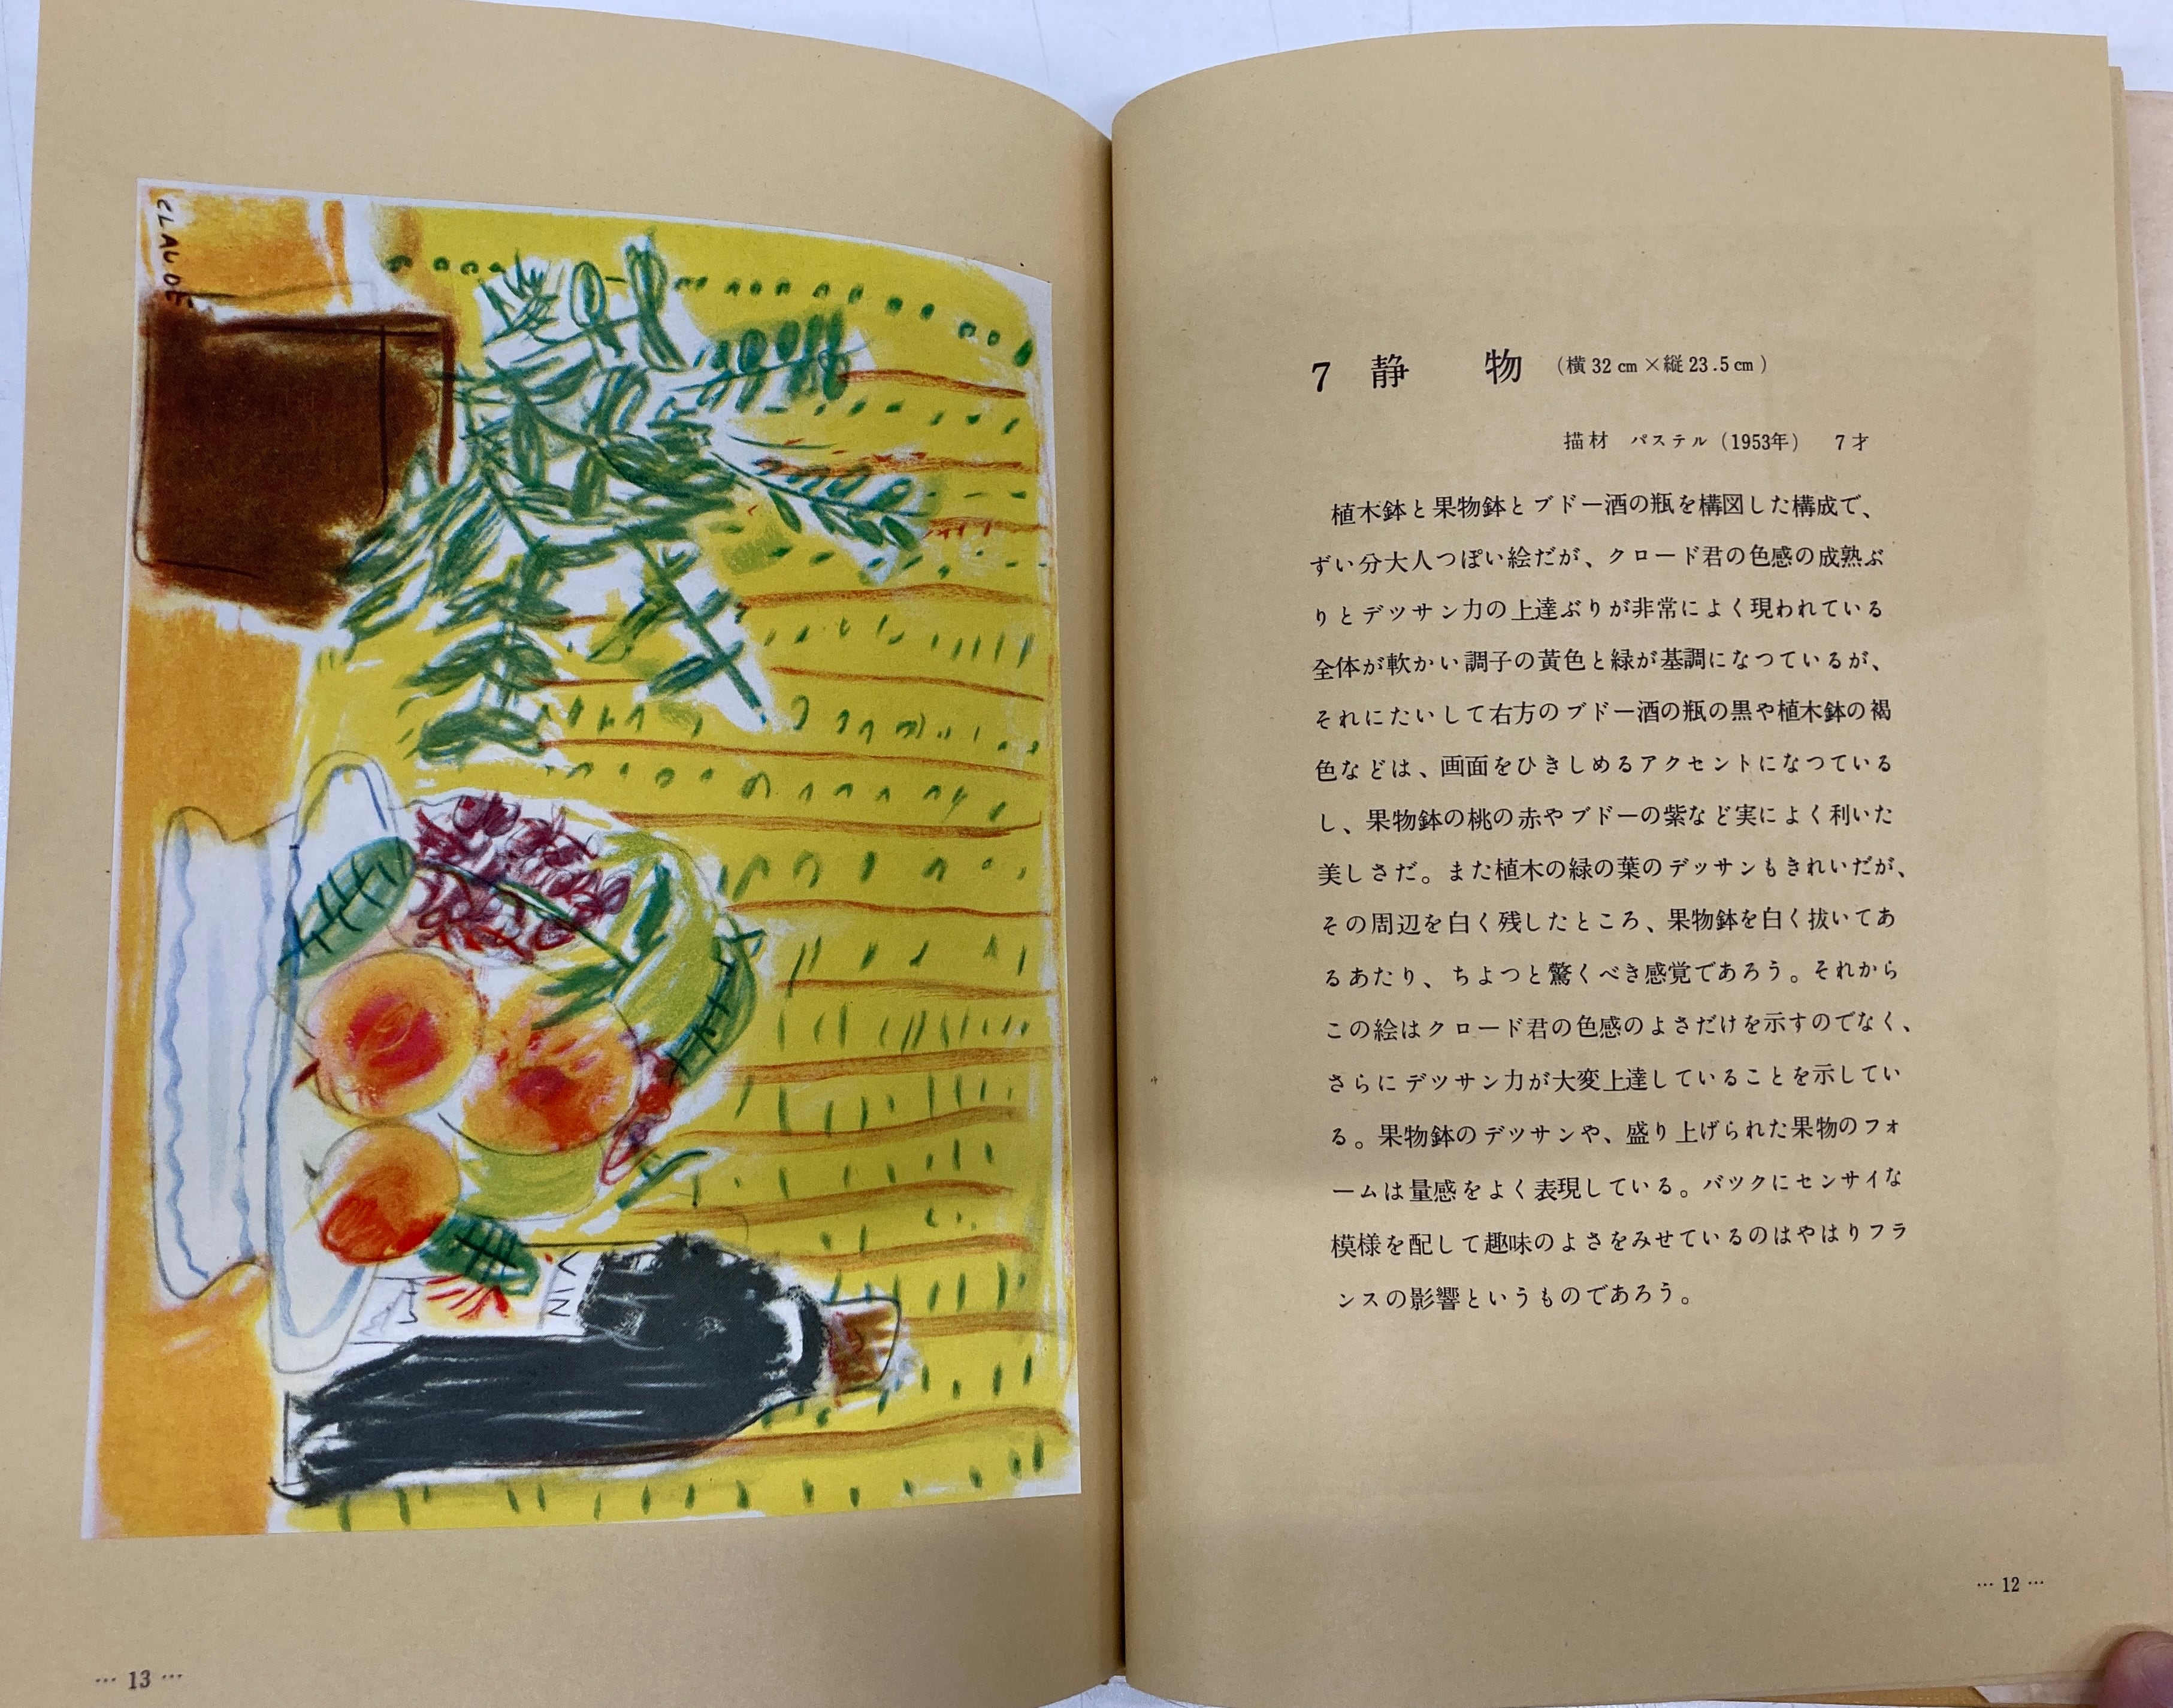 7 静 物 (横32cm×縦23.5cm)
描材 パステル (1953年) 7才
植木鉢と果物鉢とブドー酒の瓶を構図した構成で、
ずい分大人つぽい絵だが、クロード君の色感の成熟ぶ
りとデツサン力の上達ぶりが非常によく現われている
全体が軟かい調子の黃色と緑が基調になつているが、
それにたいして右方のブドー酒の瓶の黒や植木鉢の褐
色などは、画面をひきしめるアクセントになつている
し、果物鉢の桃の赤やブドーの紫など実によく利いた
美しさだ。また植木の緑の葉のデッサンもきれいだが、
その周辺を白く残したところ、果物鉢を白く抜いてあ
るあたり、ちよつと驚くべき感覚であろう。それから
この絵はクロード君の色感のよさだけを示すのでなく、
さらにデツサン力が大変上達していることを示してい
る。果物鉢のデツサンや、盛り上げられた果物のフォ
ームは量感をよく表現している。バツクにセンサイな
模様を配して趣味のよさをみせているのはやはりフラ
ンスの影響というものであろう。
… 12 …
CLAUDE
VIN
… 13 …